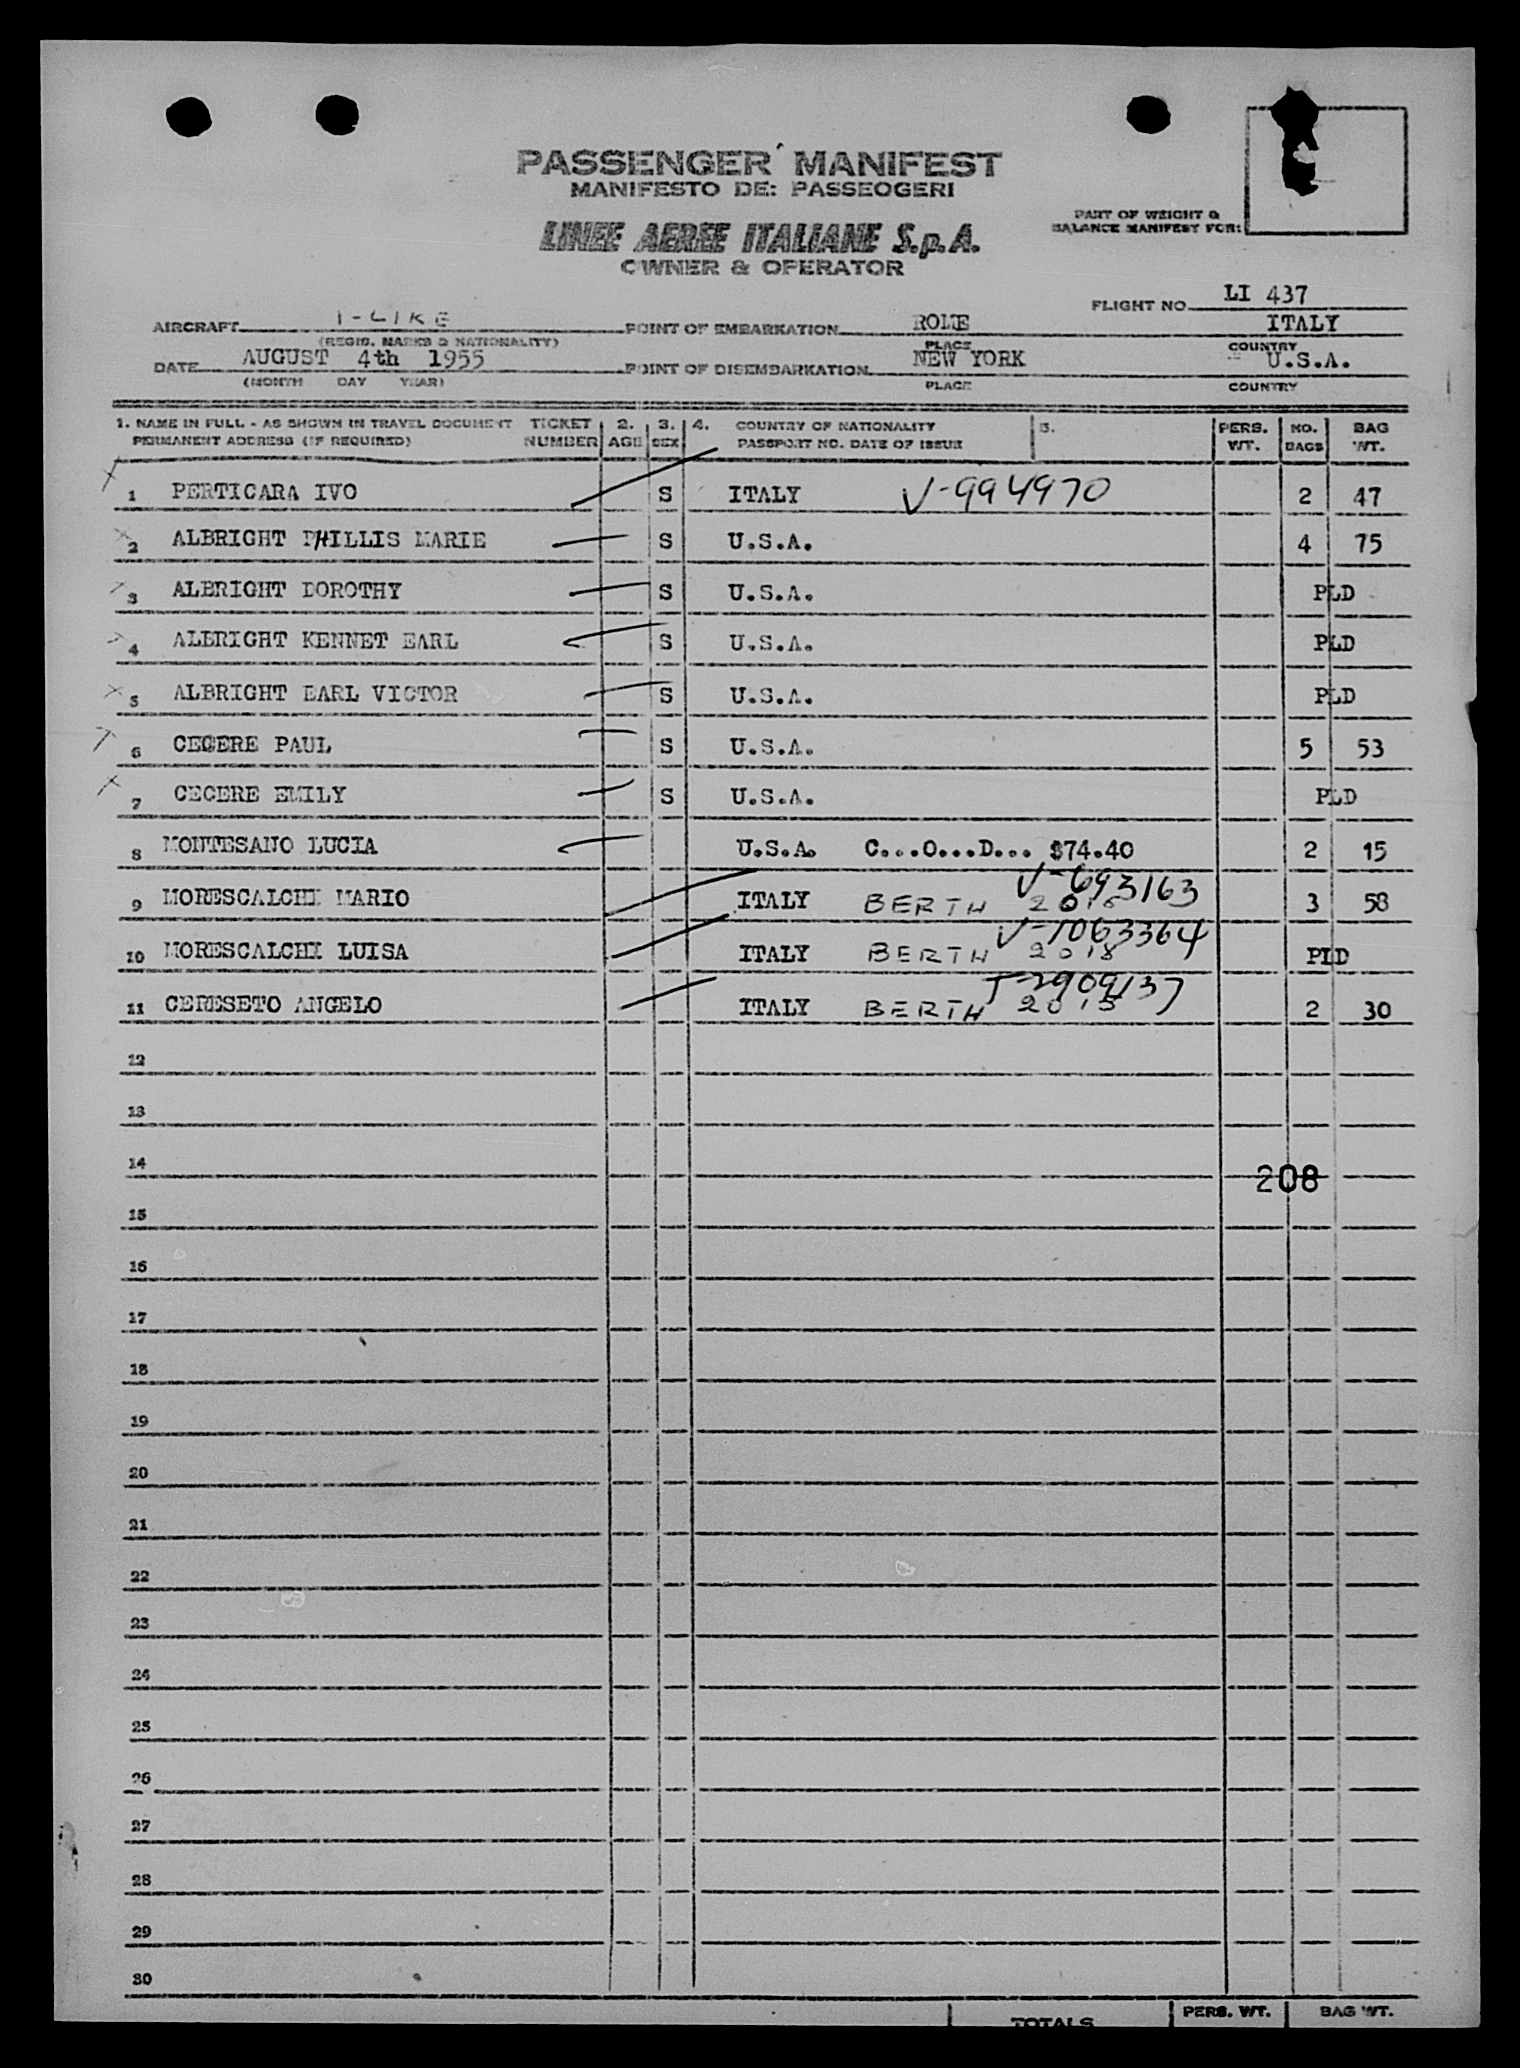 PASSENGER MANIFEST
MANIFESTO DE: PASSEOGERI
PART OF WEIGHT &
BALANCE MANIFEST FOR:
LINEE AEREE ITALIANE S.p.A.
OWNER & OPERATOR
FLIGHT NO. LI 437
AIRCRAFT I-LIKE POINT OF EMBARKATION ROME ITALY
(REGIS. MARKS & NATIONALITY) PLACE COUNTRY
DATE AUGUST 4th 1955 POINT OF DISEMBARKATION NEW YORK U.S.A.
(MONTH DAY YEAR) PLACE COUNTRY
1. NAME IN FULL - AS SHOWN IN TRAVEL DOCUMENT TICKET 2. 3. 4. COUNTRY OF NATIONALITY 5. PERS. NO. BAG
PERMANENT ADDRESS (IF REQUIRED) NUMBER AGE SEX PASSPORT NO. DATE OF ISSUE WT. BAGS WT.
1 PERTICARA IVO S ITALY V-994970 2 47
2 ALBRIGHT PHILLIS MARIE S U.S.A. 4 75
3 ALBRIGHT DOROTHY S U.S.A. PLD
4 ALBRIGHT KENNET EARL S U.S.A. PLD
5 ALBRIGHT EARL VICTOR S U.S.A. PLD
6 CECERE PAUL S U.S.A. 5 53
7 CECERE EMILY S U.S.A. PLD
8 MONTESANO LUCIA U.S.A. C...O...D... $74.40 2 15
9 MORESCALCHI MARIO ITALY BERTH V-693163 3 58
10 MORESCALCHI LUISA ITALY BERTH 2018 V-1063364 PLD
11 CERESETO ANGELO ITALY BERTH 2015 T-2909137 2 30
12
13
14
208
15
16
17
18
19
20
21
22
23
24
25
26
27
28
29
30
TOTALS PERS. WT. BAG WT.